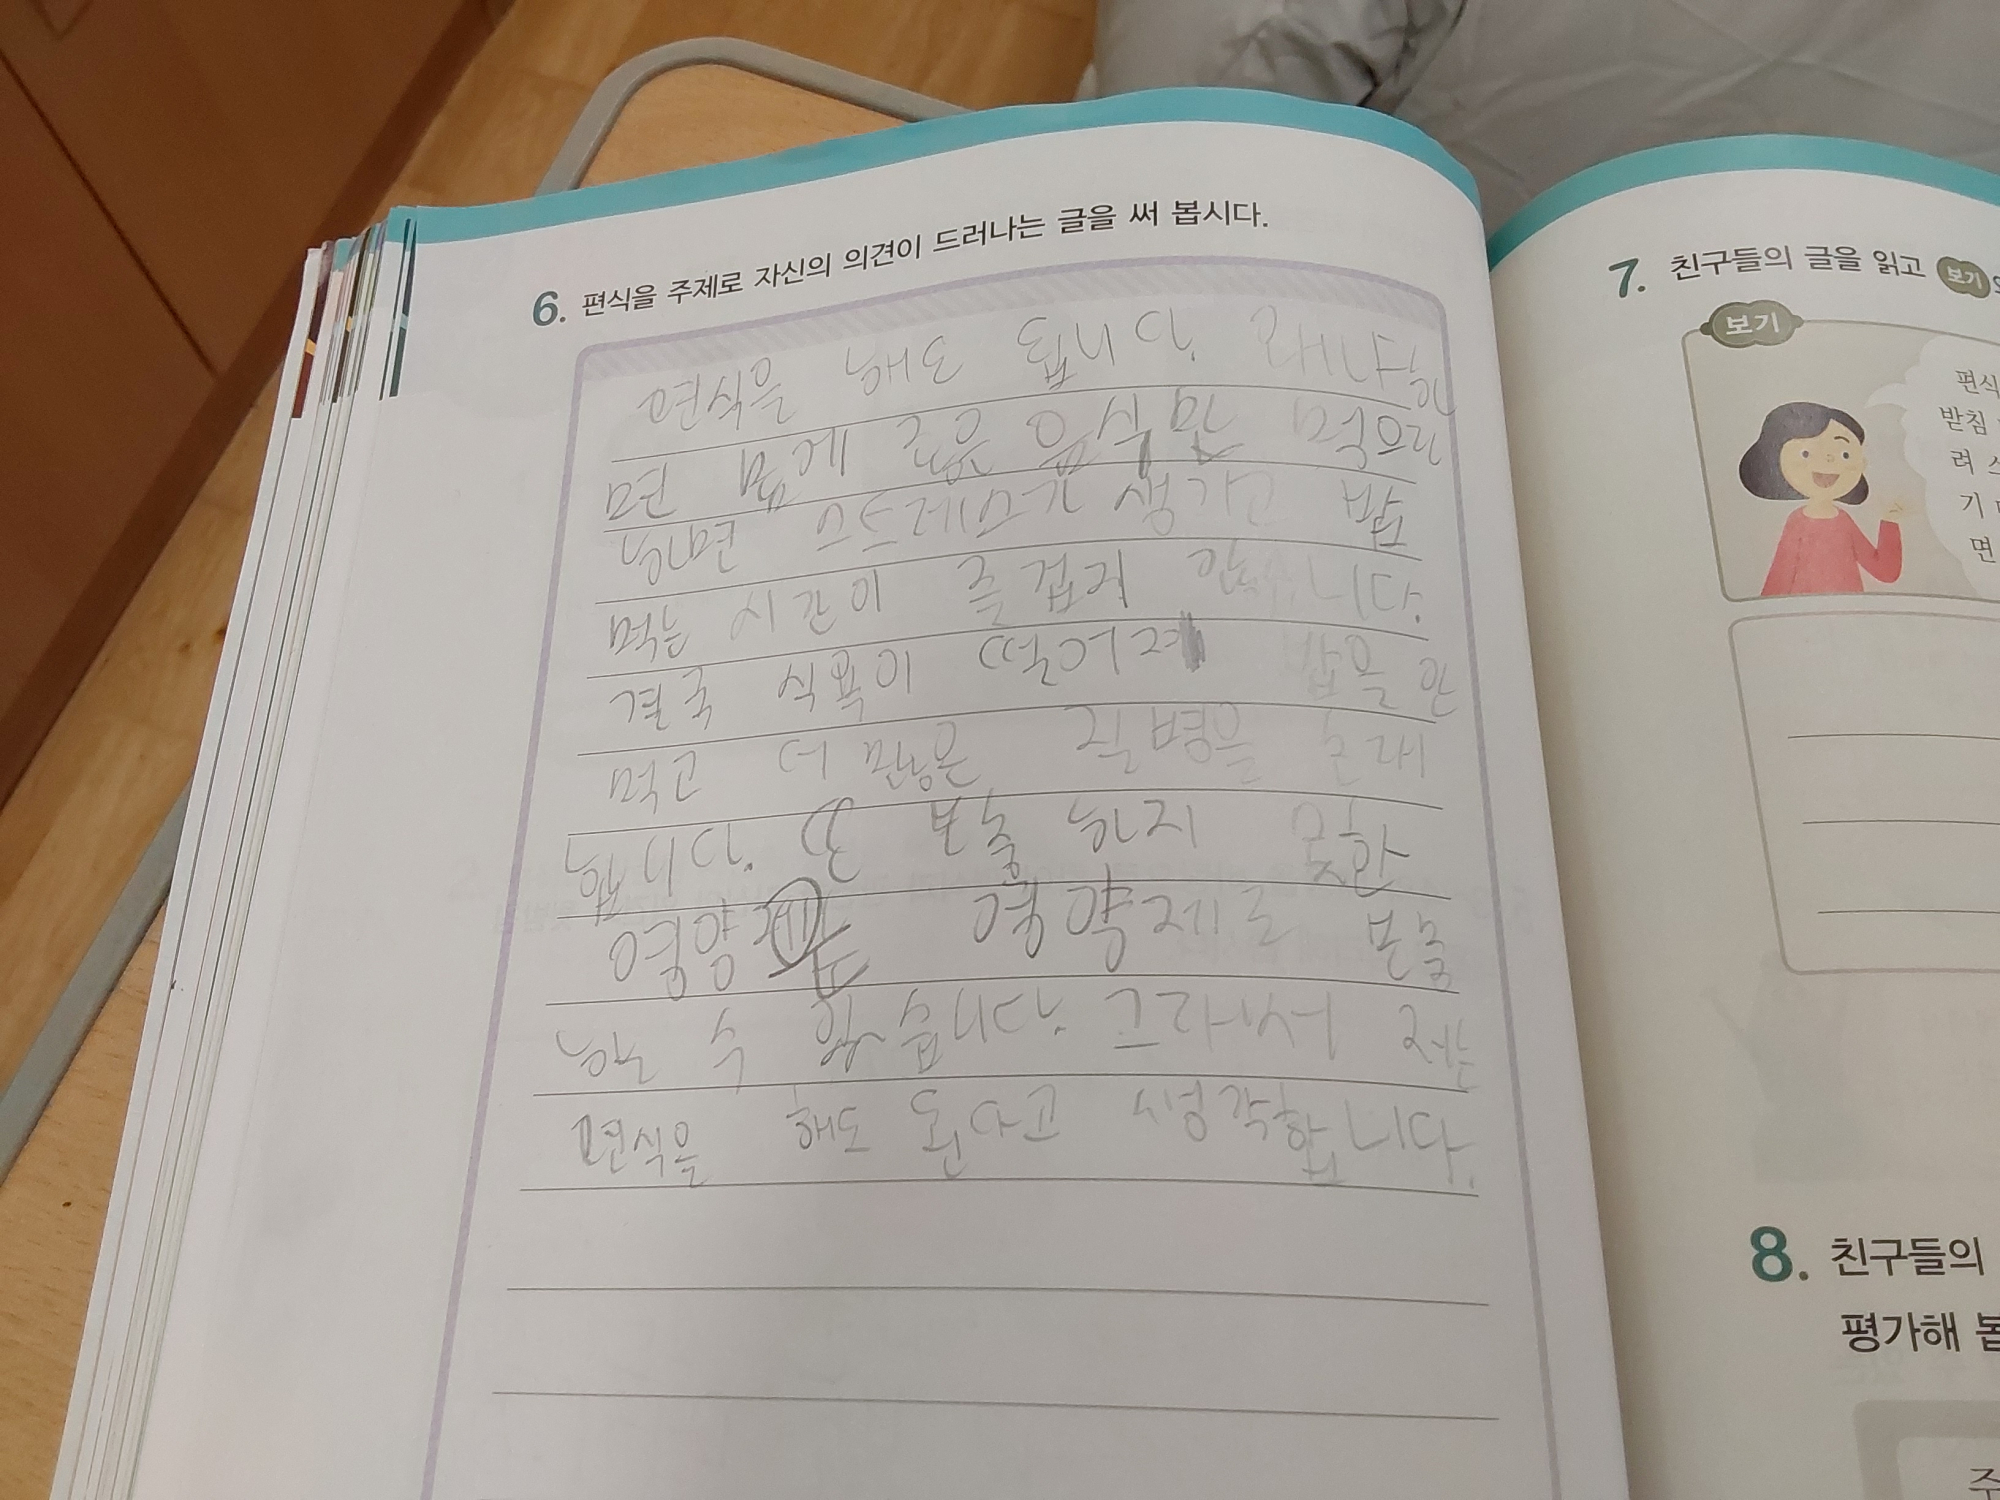 6. 편식을 주제로 자신의 의견이 드러나는 글을 써 봅시다.
편식을 해도 됩니다. 왜냐하
면 싫은 음식을 먹으라
하면 스트레스가 생기고 밥
먹는 시간이 즐겁지 않습니다.
결국 식욕이 떨어져 밥을 안
먹고 더 많은 질병을 초래
합니다. 또 보충하지 못한
영양소 영양제로 보충
할 수 있습니다. 그래서 저는
편식을 해도 된다고 생각합니다.
7. 친구들의 글을 읽고 보기
보기
편식
받침
려 쓰
기
면
8. 친구들의
평가해 봅
주